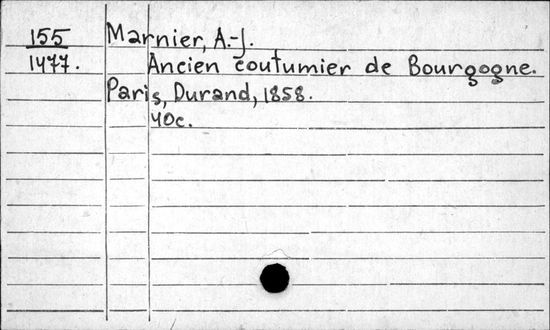 155 Marnier, A.-J.
1477. Ancien coutumier de Bourgogne.
Paris, Durand, 1858.
40c.